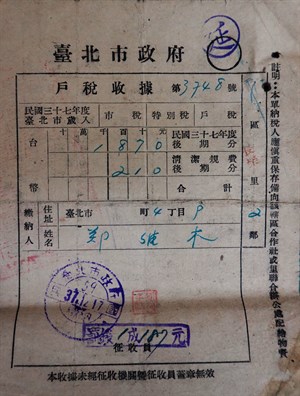 臺北市政府
戶稅收據 第3748號
民國三十七年度
臺北市歲入
市稅特別稅戶稅
十萬千百十元
民國三十七年度
後期分
1870
清潔規費
後期分
210
合計
台幣
區
里
2鄰
繳納人
住址
臺北市 町4丁目 戶
姓名
37.12.17
1成187元
征收員
本收據未經征收機關暨征收員蓋章無效
註明:本單納稅人應慎重保存備向該轄區合作社或里聯合辦公處配給物資